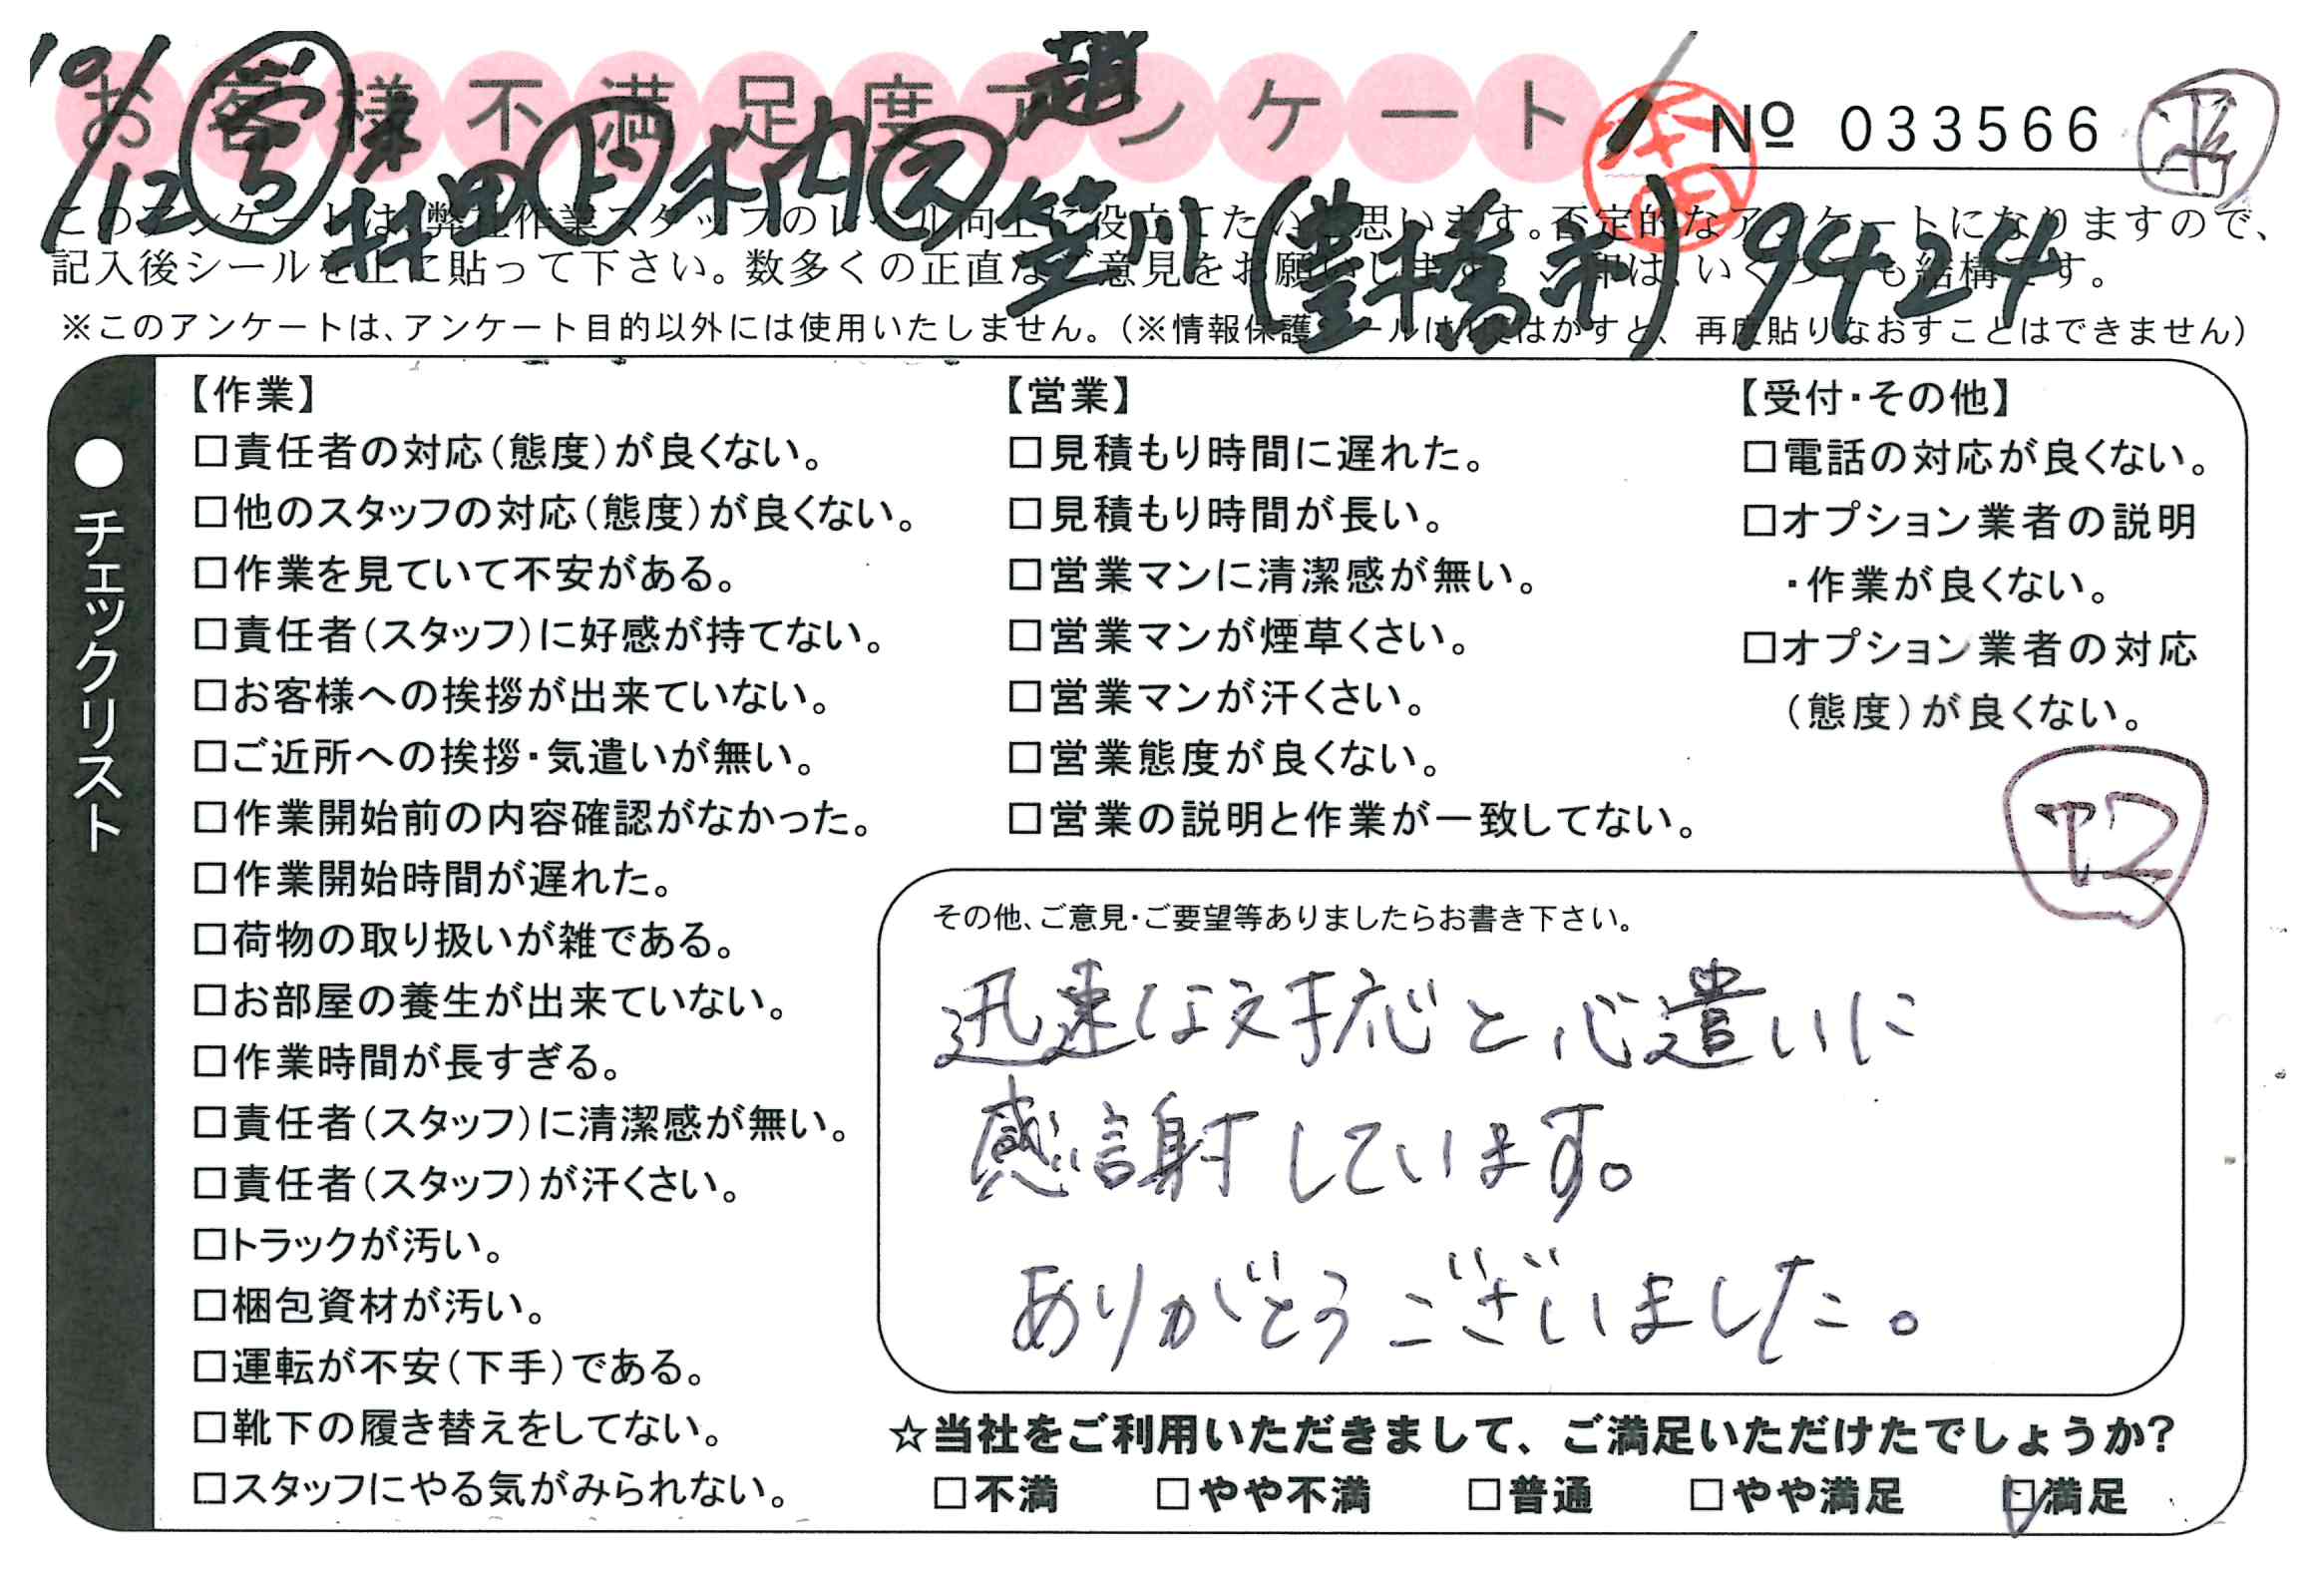 お客様不満足度アンケート
№ 033566
10/12
村田 木内 笠川 (豊橋市) 9424
このアンケートは、弊社作業スタッフのレベル向上に役立てたいと思います。否定的なアンケートになりますので、
記入後シールを上に貼って下さい。数多くの正直なご意見をお願いします。レ印は、いくつでも結構です。
※このアンケートは、アンケート目的以外には使用いたしません。(※情報保護シールは1度はがすと、再度貼りなおすことはできません)
●チェックリスト
【作業】
□責任者の対応(態度)が良くない。
□他のスタッフの対応(態度)が良くない。
□作業を見ていて不安がある。
□責任者(スタッフ)に好感が持てない。
□お客様への挨拶が出来ていない。
□ご近所への挨拶・気遣いが無い。
□作業開始前の内容確認がなかった。
□作業開始時間が遅れた。
□荷物の取り扱いが雑である。
□お部屋の養生が出来ていない。
□作業時間が長すぎる。
□責任者(スタッフ)に清潔感が無い。
□責任者(スタッフ)が汗くさい。
□トラックが汚い。
□梱包資材が汚い。
□運転が不安(下手)である。
□靴下の履き替えをしてない。
□スタッフにやる気がみられない。
【営業】
□見積もり時間に遅れた。
□見積もり時間が長い。
□営業マンに清潔感が無い。
□営業マンが煙草くさい。
□営業マンが汗くさい。
□営業態度が良くない。
□営業の説明と作業が一致してない。
【受付・その他】
□電話の対応が良くない。
□オプション業者の説明
・作業が良くない。
□オプション業者の対応
(態度)が良くない。
その他、ご意見・ご要望等ありましたらお書き下さい。
迅速な対応と心遣いに
感謝しています。
ありがとうございました。
☆当社をご利用いただきまして、ご満足いただけたでしょうか?
□不満 □やや不満 □普通 □やや満足 □満足